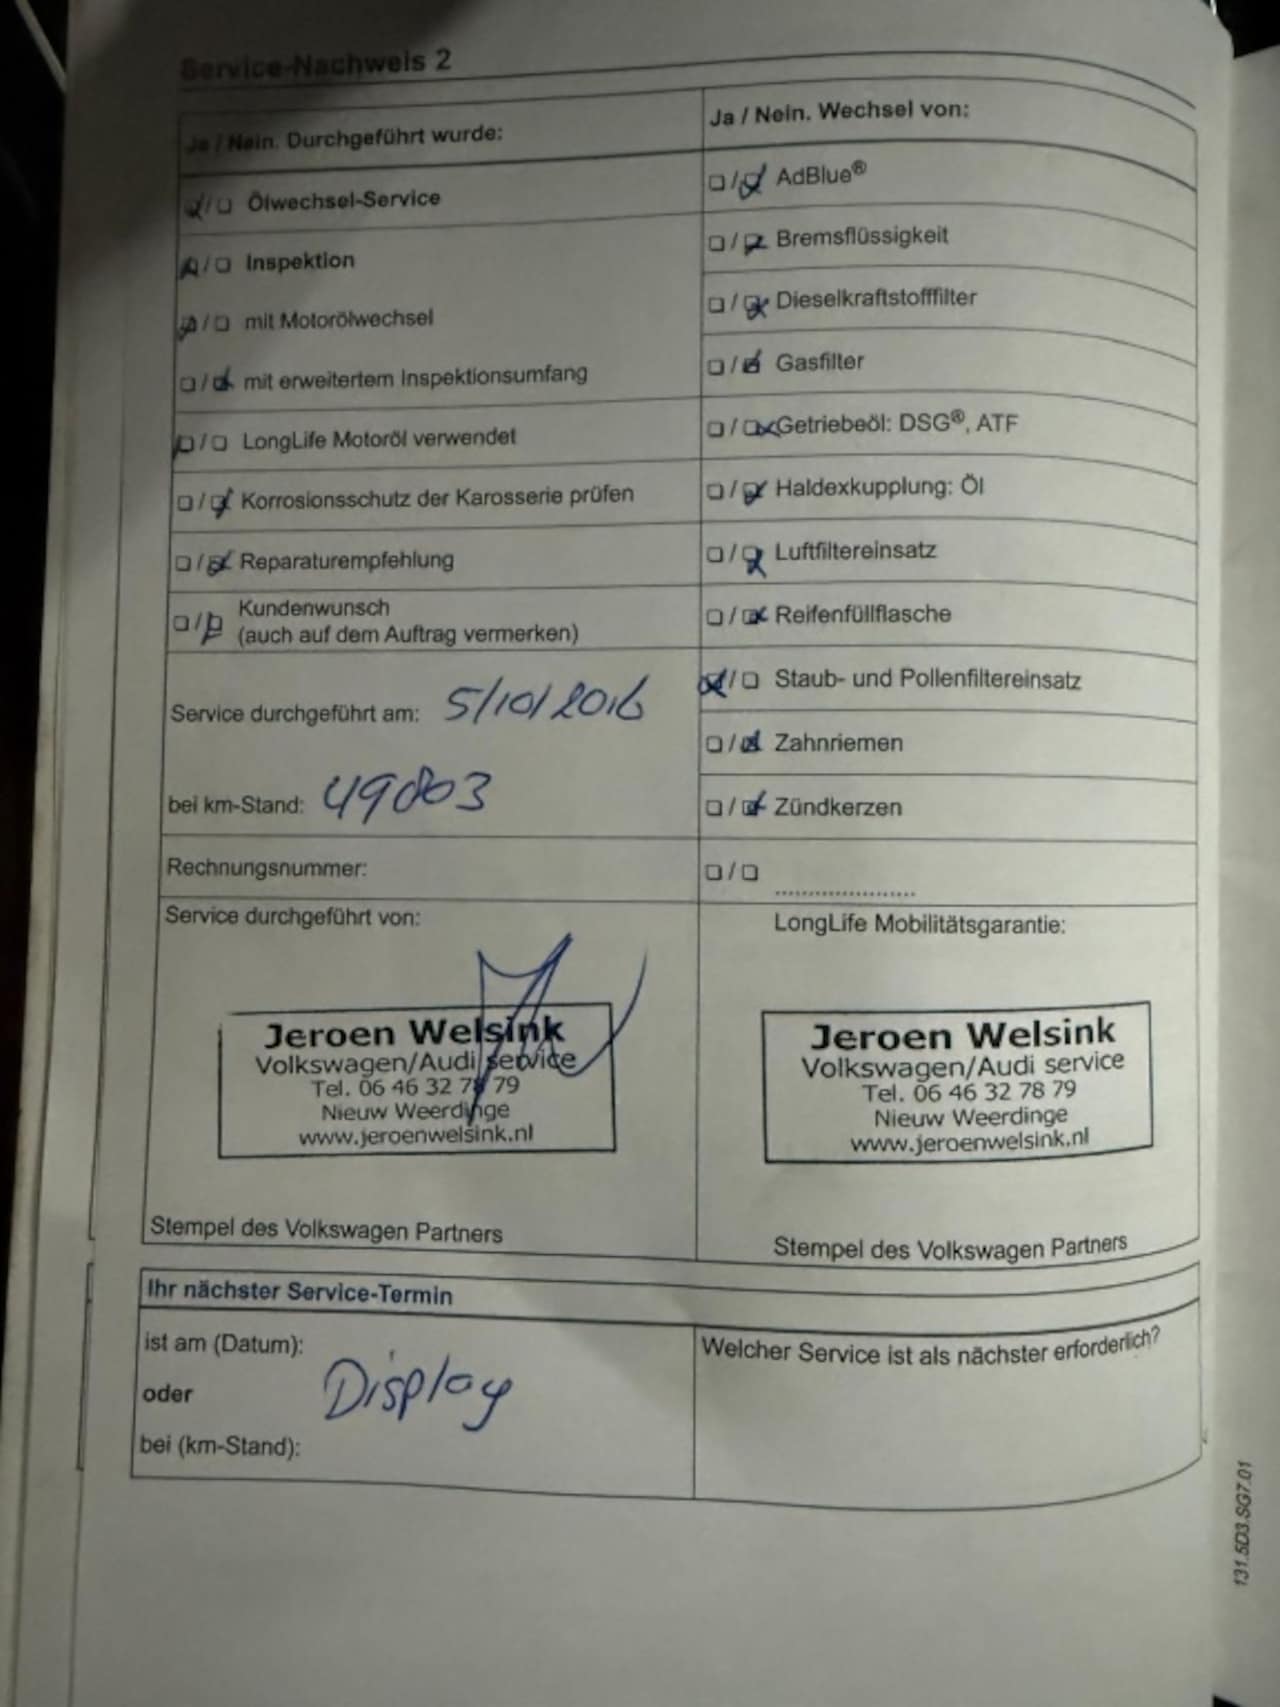 Service-Nachweis 2
Ja / Nein. Durchgeführt wurde:
☑/☐ Ölwechsel-Service
☑/☐ Inspektion
☑/☐ mit Motorölwechsel
☐/☑ mit erweitertem Inspektionsumfang
☑/☐ LongLife Motoröl verwendet
☐/☑ Korrosionsschutz der Karosserie prüfen
☐/☑ Reparaturempfehlung
☐/☑ Kundenwunsch
(auch auf dem Auftrag vermerken)
Service durchgeführt am: 5/10/2016
bei km-Stand: 49803
Rechnungsnummer:
Service durchgeführt von:
Jeroen Welsink
Volkswagen/Audi service
Tel. 06 46 32 78 79
Nieuw Weerdinge
www.jeroenwelsink.nl
Stempel des Volkswagen Partners
Ja / Nein. Wechsel von:
☐/☑ AdBlue®
☐/☑ Bremsflüssigkeit
☐/☑ Dieselkraftstofffilter
☐/☑ Gasfilter
☐/☑ Getriebeöl: DSG®, ATF
☐/☑ Haldexkupplung: Öl
☐/☑ Luftfiltereinsatz
☐/☑ Reifenfüllflasche
☑/☐ Staub- und Pollenfiltereinsatz
☐/☑ Zahnriemen
☐/☑ Zündkerzen
☐/☐ ......................
LongLife Mobilitätsgarantie:
Jeroen Welsink
Volkswagen/Audi service
Tel. 06 46 32 78 79
Nieuw Weerdinge
www.jeroenwelsink.nl
Stempel des Volkswagen Partners
Ihr nächster Service-Termin
ist am (Datum):
oder
Display
bei (km-Stand):
Welcher Service ist als nächster erforderlich?
131.5D3.SG7.01